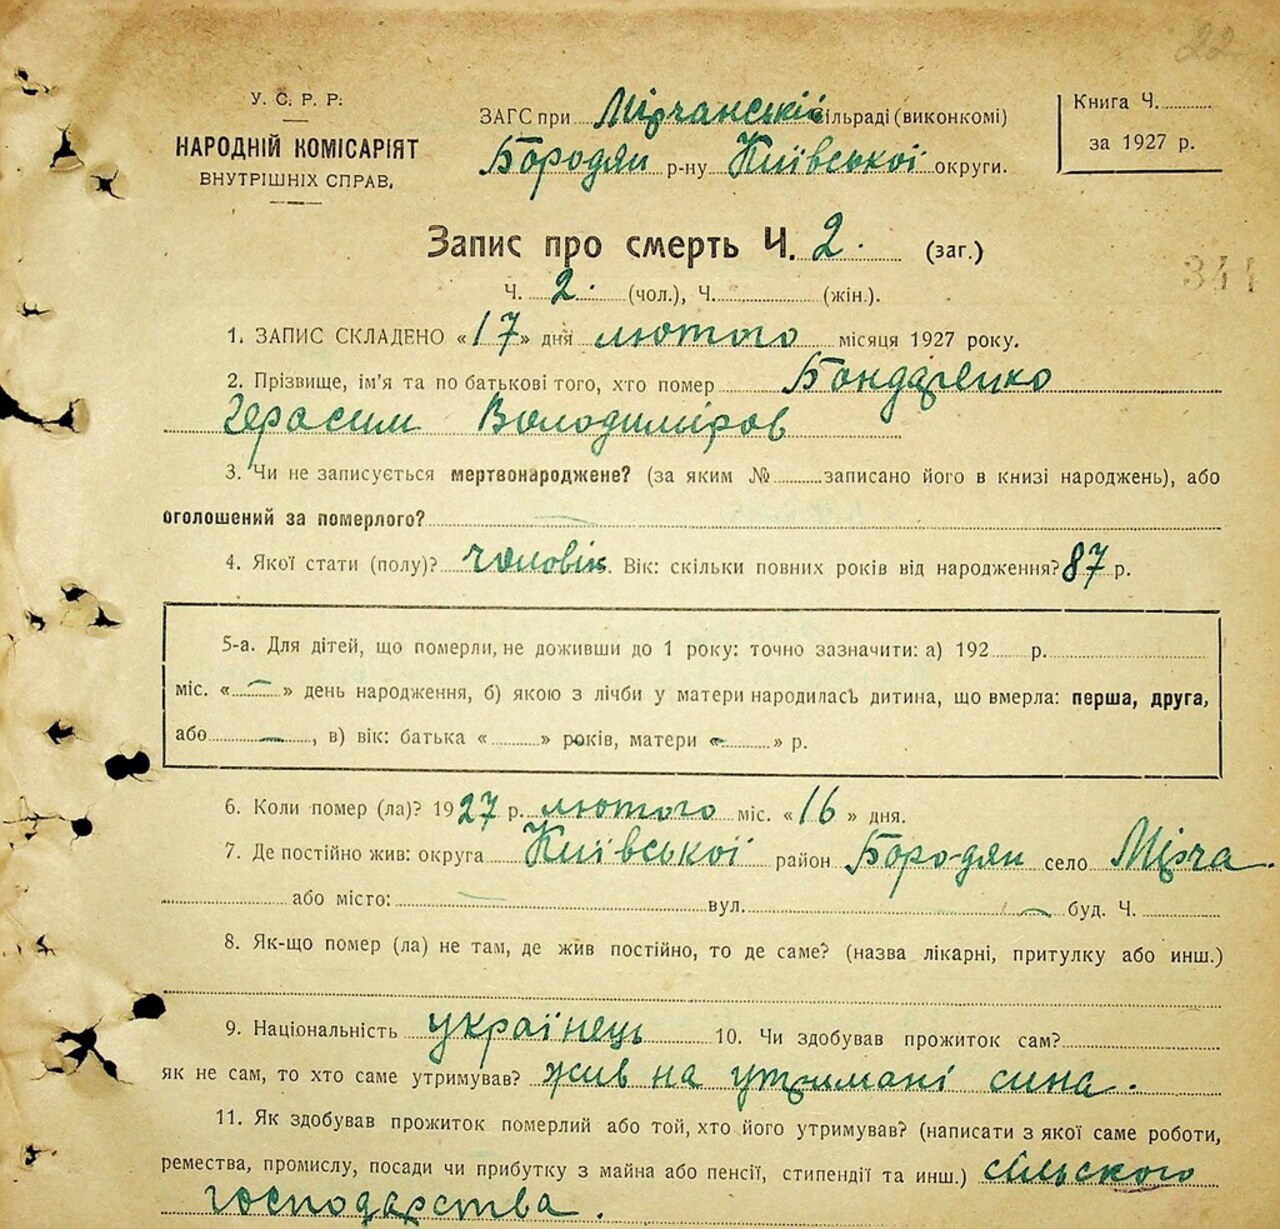 22
У. С. Р. Р.
НАРОДНІЙ КОМІСАРІЯТ
ВНУТРІШНІХ СПРАВ.
ЗАГС при Мірчанській сільраді (виконкомі)
Бородян р-ну Київської округи.
Книга Ч.
за 1927 р.
Запис про смерть Ч. 2. (заг.)
344
Ч. 2. (чол.), Ч. (жін.).
1. ЗАПИС СКЛАДЕНО «17» дня лютого місяця 1927 року.
2. Прізвище, ім'я та по батькові того, хто помер Бондаренко
Герасим Володиміров
3. Чи не записується мертвонароджене? (за яким № записано його в книзі народжень), або
оголошений за померлого?
4. Якої стати (полу)? чоловік. Вік: скільки повних років від народження? 87 р.
5-а. Для дітей, що померли, не доживши до 1 року: точно зазначити: а) 192 р.
міс. «—» день народження, б) якою з лічби у матери народилась дитина, що вмерла: перша, друга,
або —, в) вік: батька « » років, матери «-» р.
6. Коли помер (ла)? 1927 р. лютого міс. «16» дня.
7. Де постійно жив: округа Київської район Бородян село Мірча.
або місто: — вул. — буд. Ч.
8. Як-що помер (ла) не там, де жив постійно, то де саме? (назва лікарні, притулку або инш.)
9. Національність українець 10. Чи здобував прожиток сам?
як не сам, то хто саме утримував? жив на утримані сина.
11. Як здобував прожиток померлий або той, хто його утримував? (написати з якої саме роботи,
ремества, промислу, посади чи прибутку з майна або пенсії, стипендії та инш.) сільського
господарства.